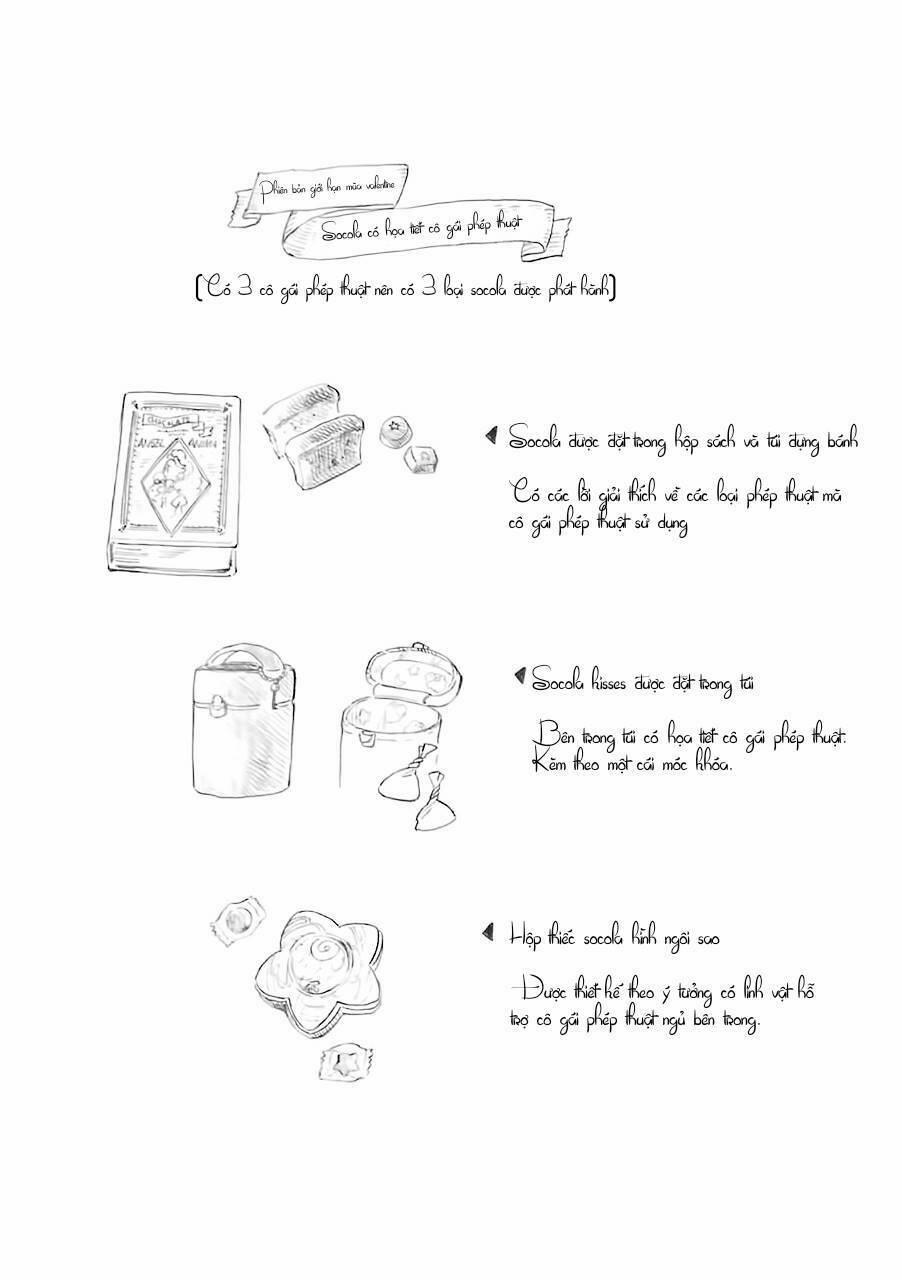 Phiên bản giới hạn mùa valentine
Socola có họa tiết cô gái phép thuật
(Có 3 cô gái phép thuật nên có 3 loại socola được phát hành)
CHOCOLATE
ANGEL
Socola được đặt trong hộp sách và túi đựng bánh
Có các lời giải thích về các loại phép thuật mà
cô gái phép thuật sử dụng
Socola kisses được đặt trong túi
Bên trong túi có họa tiết cô gái phép thuật.
Kèm theo một cái móc khóa.
Hộp thiếc socola hình ngôi sao
Được thiết kế theo ý tưởng có linh vật hỗ
trợ cô gái phép thuật ngủ bên trong.